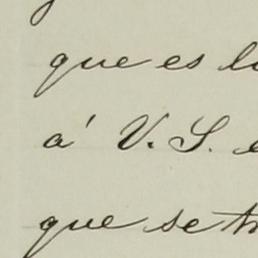 que es
á V. S.
que se